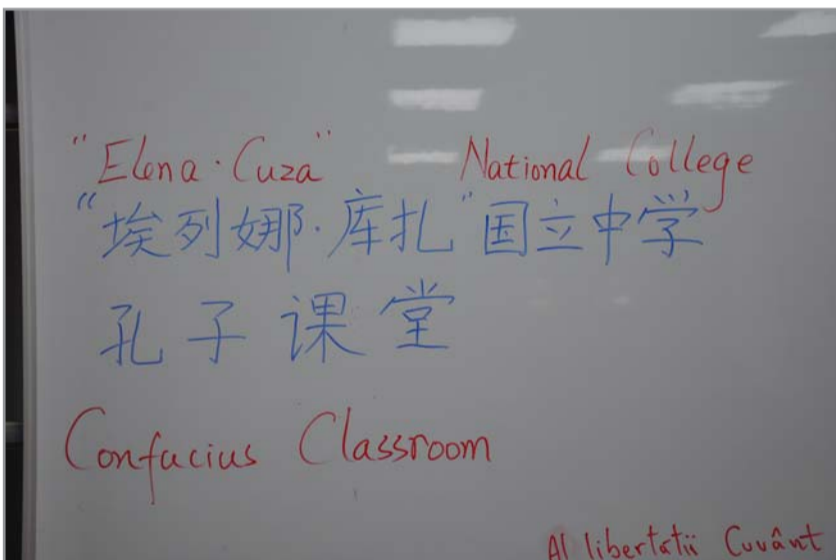 "Elena · Cuza" National College
"埃列娜·库扎"国立中学
孔子课堂
Confucius Classroom
Al libertatii Cuvânt